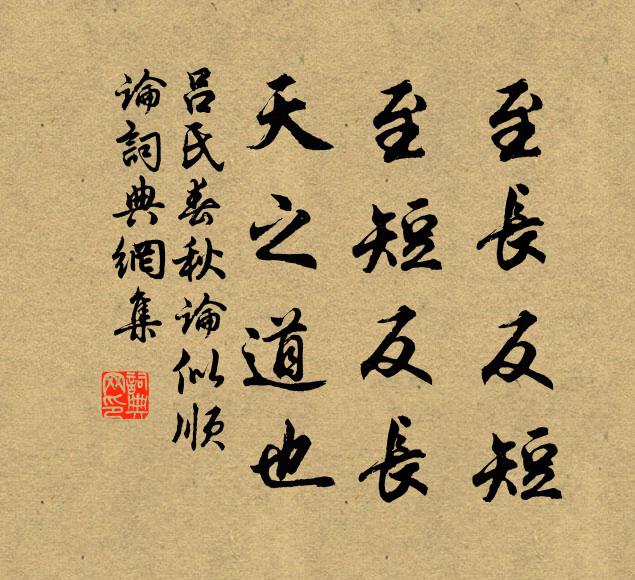 至長反短
至短反長
天之道也
呂氏春秋論似順
論詞典網集
詞典
网印